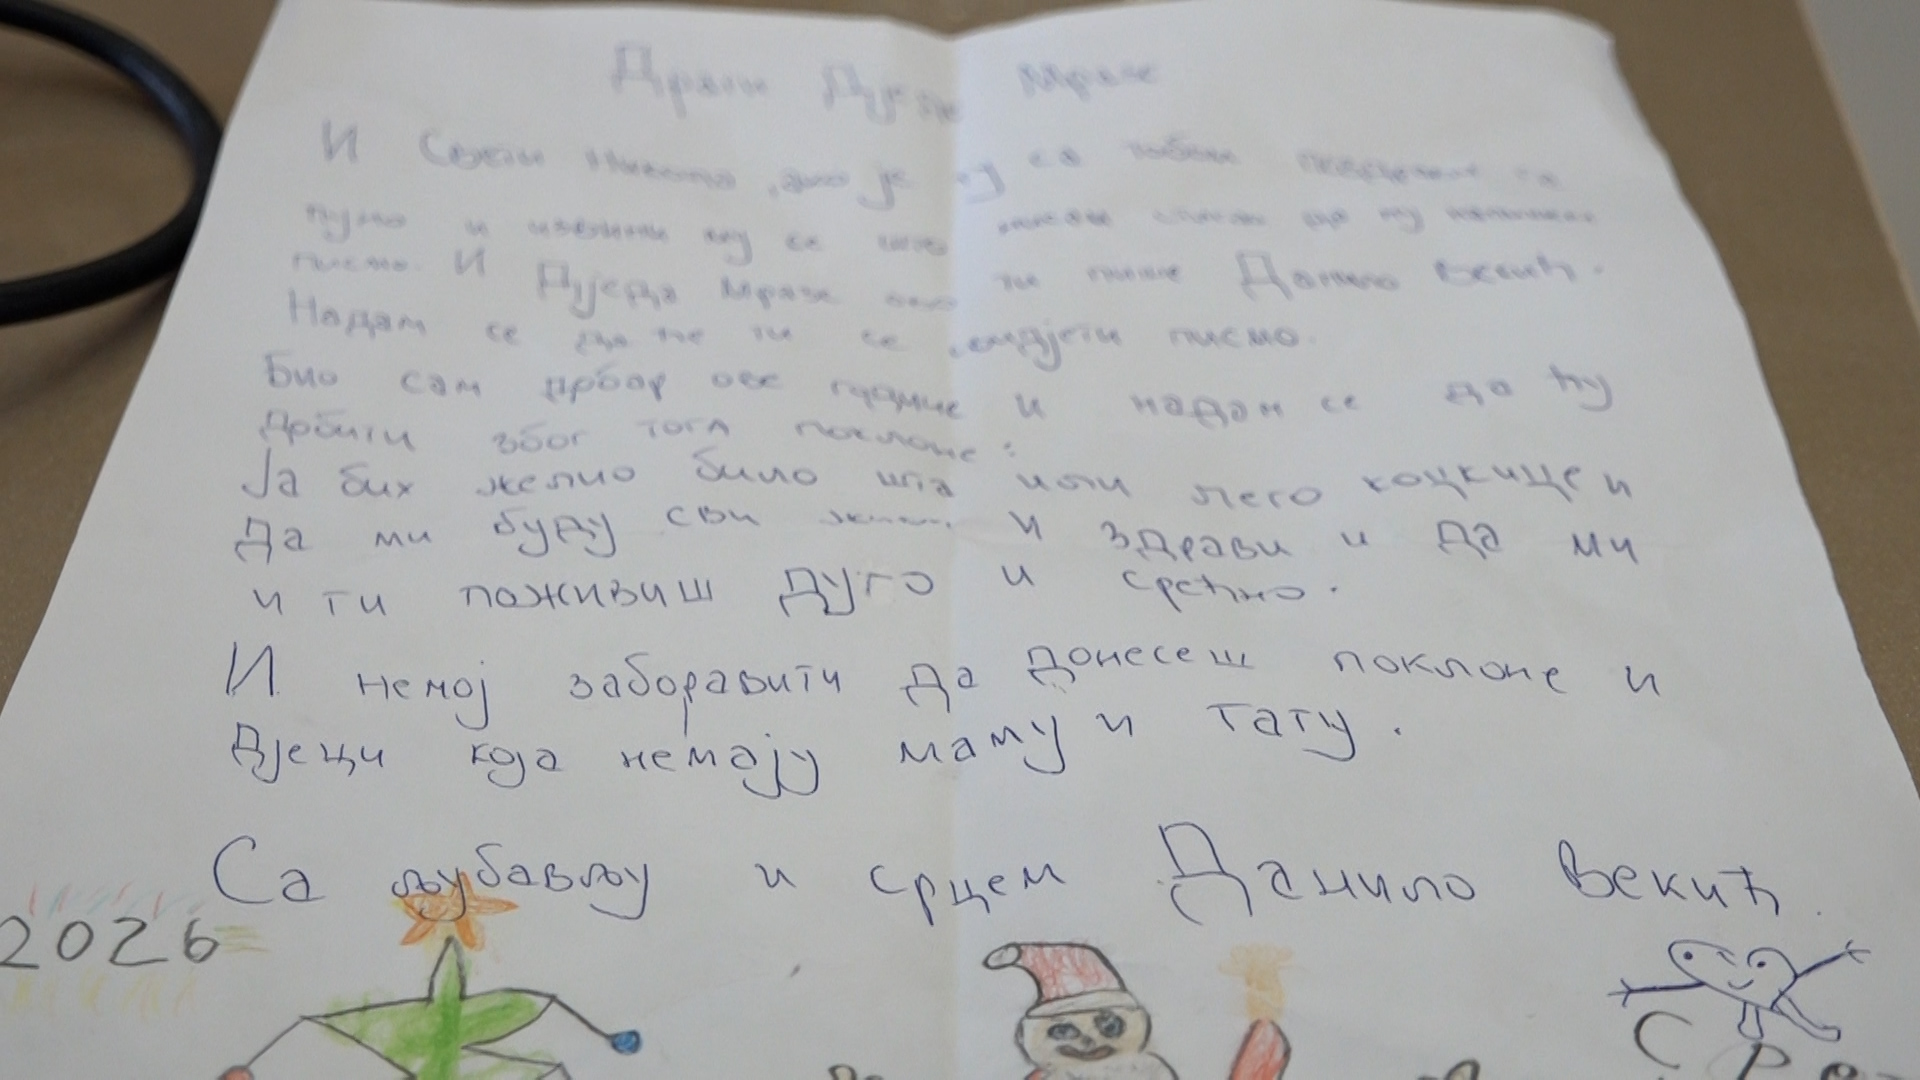 Драги Дједе Мразе
И Свети Никола, ако је са тобом
пуно и извини му се што нисам му
писмо. И Дједа Мразе ово ти пише Данило Векић.
Надам се да ће ти се свидјети писмо.
Био сам добар ове године и надам се да ћу
добити због тога поклоне:
Ја бих желио било шта или лего коцкице и
Да ми буду сви живи и здрави и да ми
и ти поживиш дуго и срећно.
И немој заборавити да донесеш поклоне и
дјеци која немају маму и тату.
Са љубављу и срцем Данило Векић.
2026